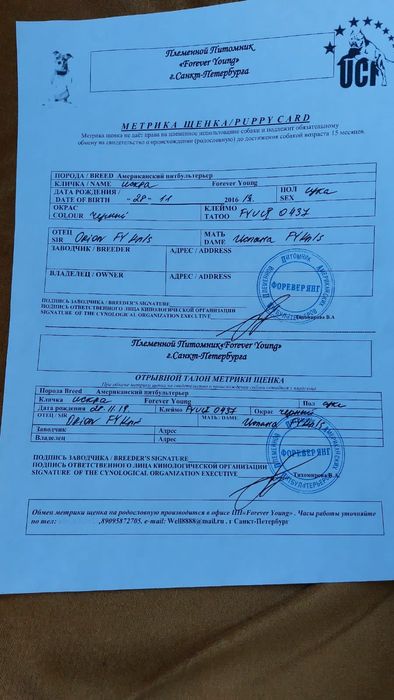 Племенной Питомник
«Forever Young»
г.Санкт-Петербурга
UCI
МЕТРИКА ЩЕНКА/PUPPY CARD
Метрика щенка не даёт права на племенное использование собаки и подлежит обязательному
обмену на свидетельство о происхождении (родословную) до достижения собакой возраста 15 месяцев.
ПОРОДА / BREED Американский питбультерьер
КЛИЧКА / NAME искра Forever Young
ДАТА РОЖДЕНИЯ / DATE OF BIRTH -28- 11 2016 18. ПОЛ SEX сука
ОКРАС COLOUR черный КЛЕЙМО TATOO FYUCI 0437
ОТЕЦ SIR Орион FY МАТЬ DAME FY
ЗАВОДЧИК / BREEDER АДРЕС / ADDRESS
ВЛАДЕЛЕЦ / OWNER АДРЕС / ADDRESS
ПОДПИСЬ ЗАВОДЧИКА / BREEDER'S SIGNATURE
ПОДПИСЬ ОТВЕТСТВЕННОГО ЛИЦА КИНОЛОГИЧЕСКОЙ ОРГАНИЗАЦИИ
SIGNATURE OF THE CYNOLOGICAL ORGANIZATION EXECUTIVE Тихомирова В.А
ФОРЕВЕР ЯНГ
Племенной Питомник«Forever Young»
г.Санкт-Петербурга
ОТРЫВНОЙ ТАЛОН МЕТРИКИ ЩЕНКА
Порода Breed Американский питбультерьер
Кличка искра Forever Young Пол сука
Дата рождения 28.11.18. Клеймо FYUCI 0437 Окрас черный
ОТЕЦ / SIR Орион FY МАТЬ / DAME FY
Заводчик Адрес
Владелец Адрес
ПОДПИСЬ ЗАВОДЧИКА / BREEDER'S SIGNATURE
ПОДПИСЬ ОТВЕТСТВЕННОГО ЛИЦА КИНОЛОГИЧЕСКОЙ ОРГАНИЗАЦИИ
SIGNATURE OF THE CYNOLOGICAL ORGANIZATION EXECUTIVE Тихомирова В.А
ФОРЕВЕР ЯНГ
Обмен метрики щенка на родословную производится в офисе ПП«Forever Young» . Часы работы уточняйте
по тел: ,89095872705. e-mail: Well8888@mail.ru , г Санкт-Петербург